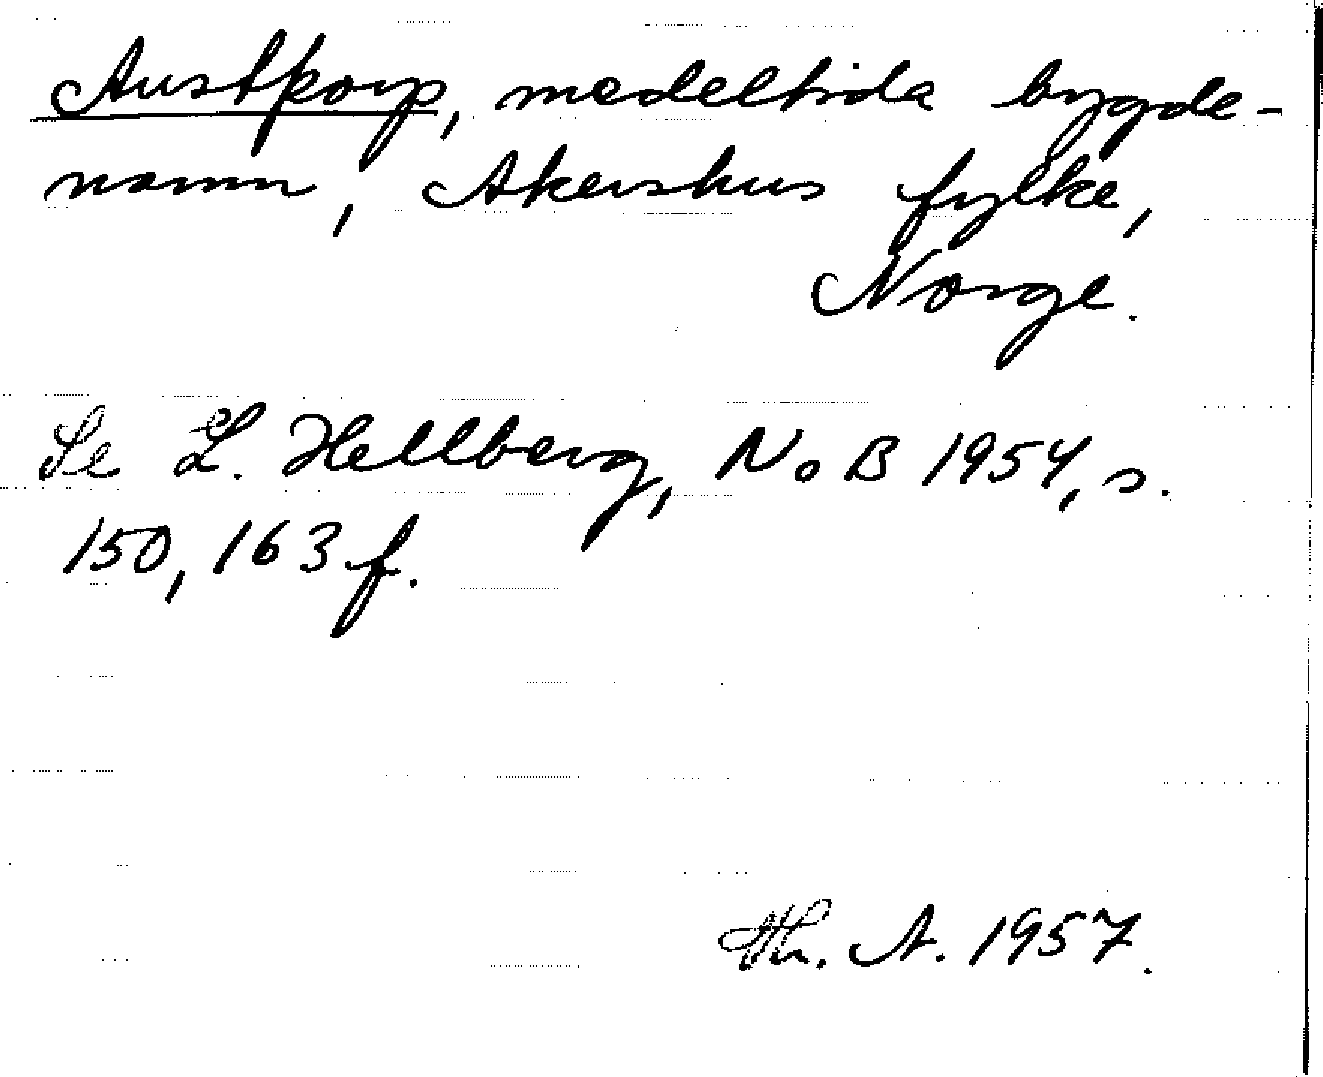 Austþorp, medeltida bygde-
namn, Akershus fylke,
Norge.
Se L. Hellberg, NoB 1954, s.
150, 163 f.
Th. A. 1957.